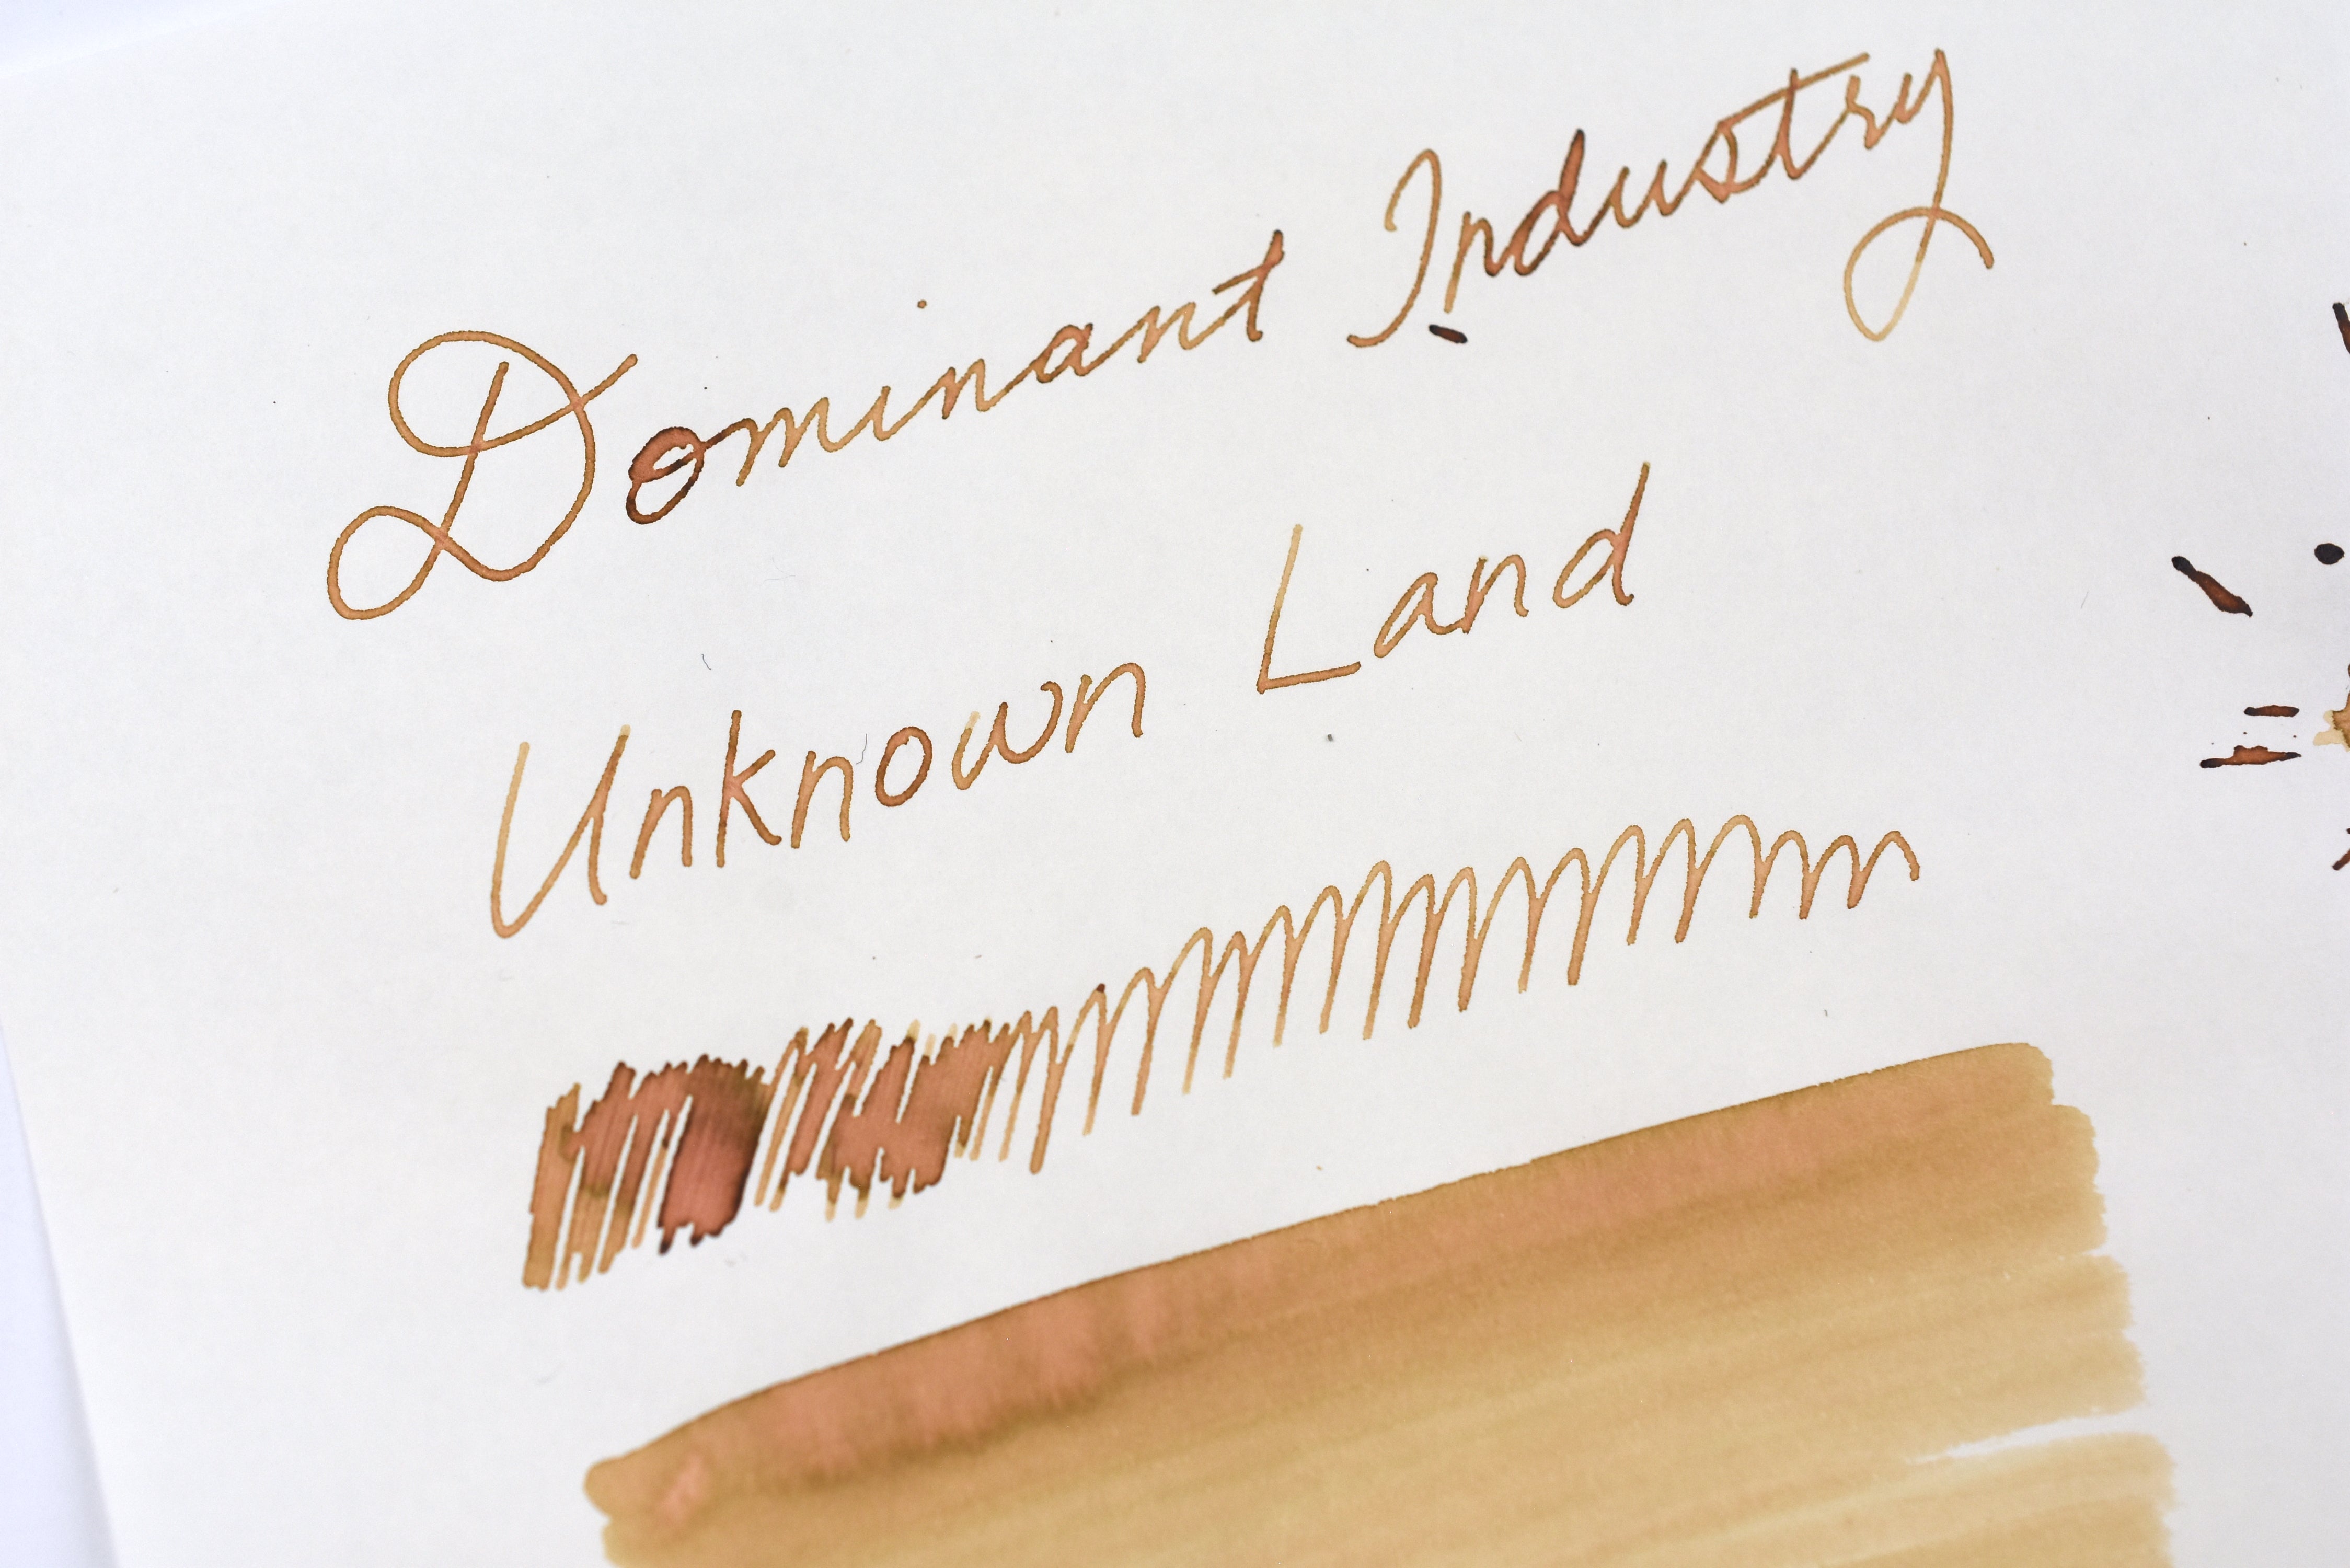 Dominant Industry
Unknown Land